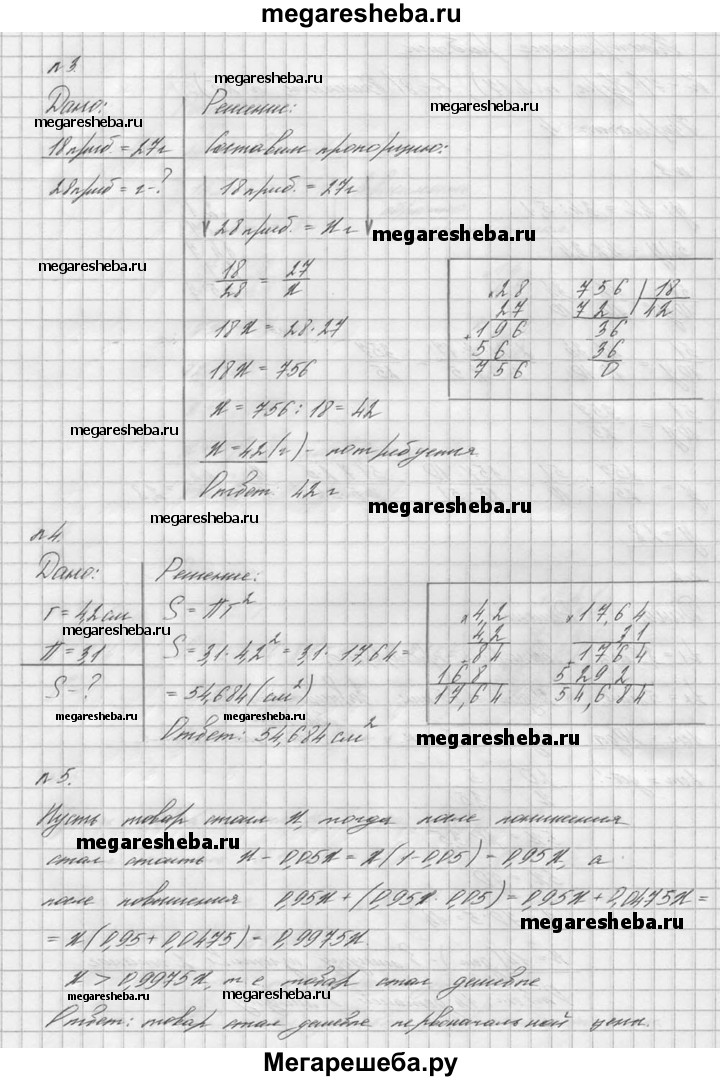 megaresheba.ru
n 3.
megaresheba.ru
Дано: Решение:
megaresheba.ru
megaresheba.ru
18 приб = 27 г Составим пропорцию:
28 приб = г - ? 18 приб. = 27 г
28 приб. = x г
megaresheba.ru
megaresheba.ru
18/28 = 27/x
18x = 28·27
18x = 756
x = 756 : 18 = 42
x = 42 (г) - потребуется
Ответ 42 г
× 28
27
+ 196
56
756
756 | 18
72 42
36
36
0
megaresheba.ru
megaresheba.ru
megaresheba.ru
n 4.
Дано: Решение:
r = 4,2 см S = Пr²
megaresheba.ru
П = 3,1 S = 3,1 · 4,2² = 3,1 · 17,64 =
S - ? = 54,684 (см²)
megaresheba.ru
megaresheba.ru
Ответ: 54,684 см²
× 4,2
4,2
84
168
17,64
× 17,64
3,1
1764
5292
54,684
megaresheba.ru
n 5.
Пусть товар стоил x, тогда после понижения
megaresheba.ru
стал стоить x - 0,05x = x(1-0,05) = 0,95x, а
после повышения 0,95x + (0,95x · 0,05) = 0,95x + 0,0475x =
megaresheba.ru
= x(0,95 + 0,0475) = 0,9975x.
x > 0,9975x, т е товар стал дешевле
megaresheba.ru
megaresheba.ru
Ответ: товар стал дешевле первоначальной цены.
Мегарешеба.ру